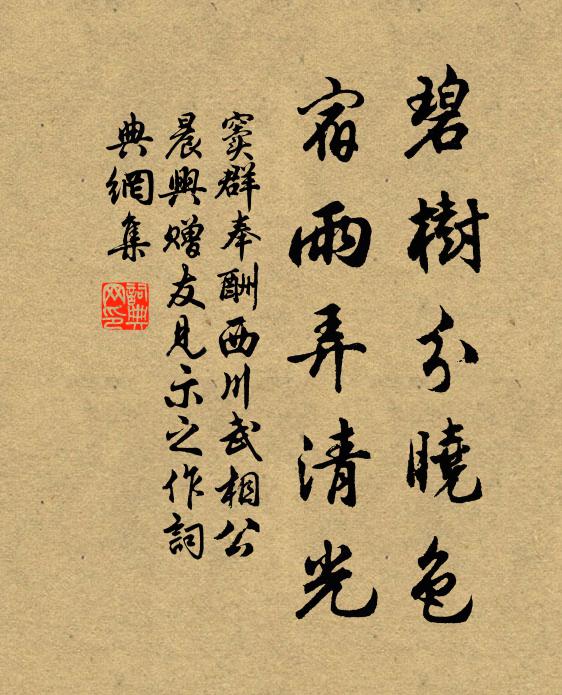 碧樹分曉色
宿雨弄清光
竇群奉酬西川武相公
晨興贈友見示之作詞
典網集
詞典網印